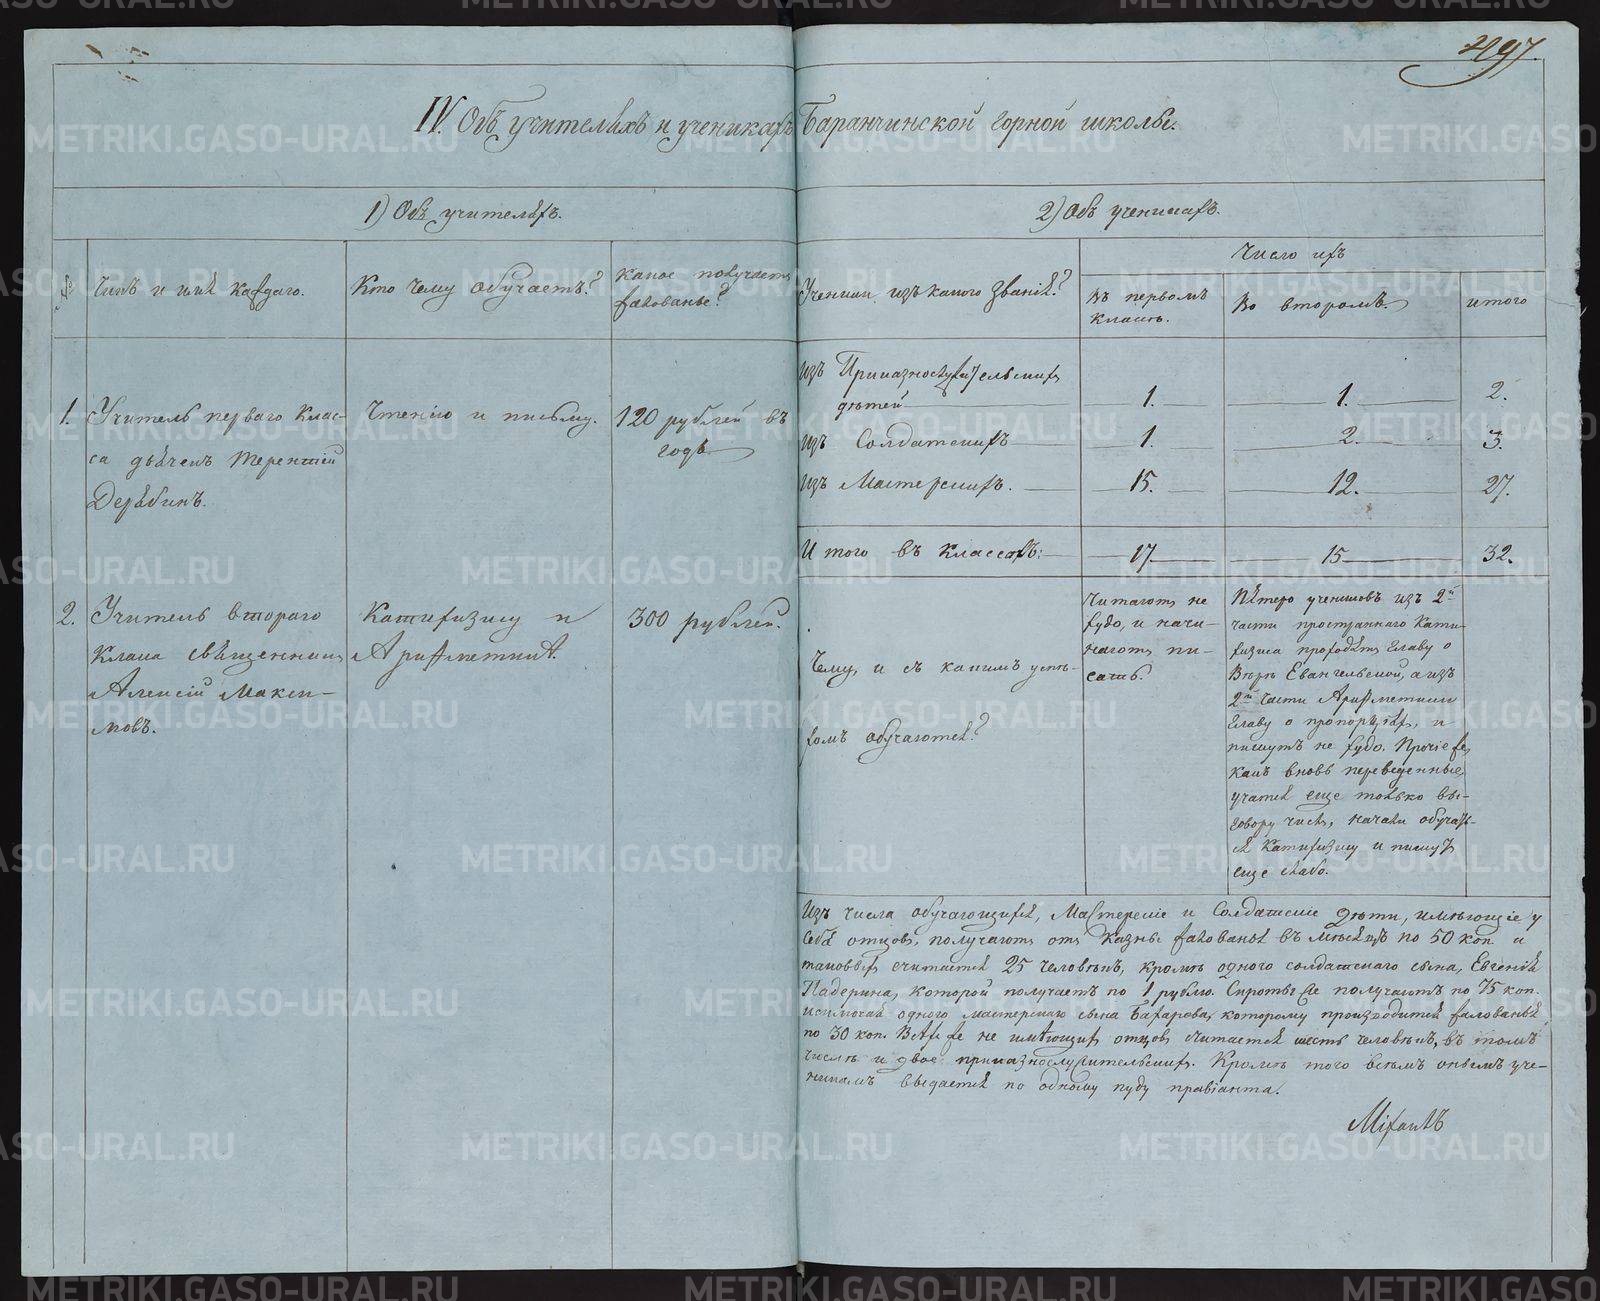 497.
IV. Объ учителяхъ и ученикахъ Баранчинской горной школы.
1) Объ учителяхъ.
№
Чинъ и имя каждаго.
Кто чему обучаетъ?
Какое получаетъ
жалованье?
1.
Учитель перваго клас-
са дьячекъ Терентий
Дерябинъ.
Чтенію и письму.
120 рублей въ
годъ
2.
Учитель втораго
класса священникъ
Алексій Макси-
мовъ.
Катихизису и
Ариѳметикѣ.
300 рублей.
2) Объ ученикахъ.
Ученики изъ какого званія?
Число ихъ
Въ первомъ
классѣ.
Во второмъ.
итого
изъ Приказнослужительскихъ
дѣтей
1.
1.
2.
изъ Солдатскихъ
1.
2.
3.
изъ Мастерскихъ.
15.
12.
27.
Итого въ классахъ:
17
15
32.
Чему, и съ какимъ успѣ-
хомъ обучаются?
Читаютъ не
худо, и начи-
наютъ пи-
сать.
Пятеро учениковъ изъ 2й
части пространнаго Кати-
хизиса проходятъ Главу о
Вѣрѣ Евангельской, а изъ
2й части Ариѳметики
Главу о пропорціяхъ, и
пишутъ не худо. Прочіе же,
какъ вновь переведенные,
учатся еще только вы-
говору числъ, начали обучать-
ся Катихизису и пишутъ
еще слабо.
Изъ числа обучающихся, Мастерскіе и Солдатскіе дѣти, имѣющіе у
себя отцовъ, получаютъ отъ казны жалованья въ мѣсяцъ по 50 коп. и
таковыхъ считается 25 человѣкъ, кромѣ одного солдатскаго сына, Евгенія
Падерина, которой получаетъ по 1 рублю. Сироты же получаютъ по 75 коп.
исключая одного мастерскаго сына Бахарева, которому производится жалованья
по 30 коп. Всѣхъ же не имѣющихъ отцовъ считается шесть человѣкъ, въ томъ
числѣ и двое приказнослужительскихъ. Кромѣ того всѣмъ онымъ уче-
никамъ выдается по одному пуду провіанта.